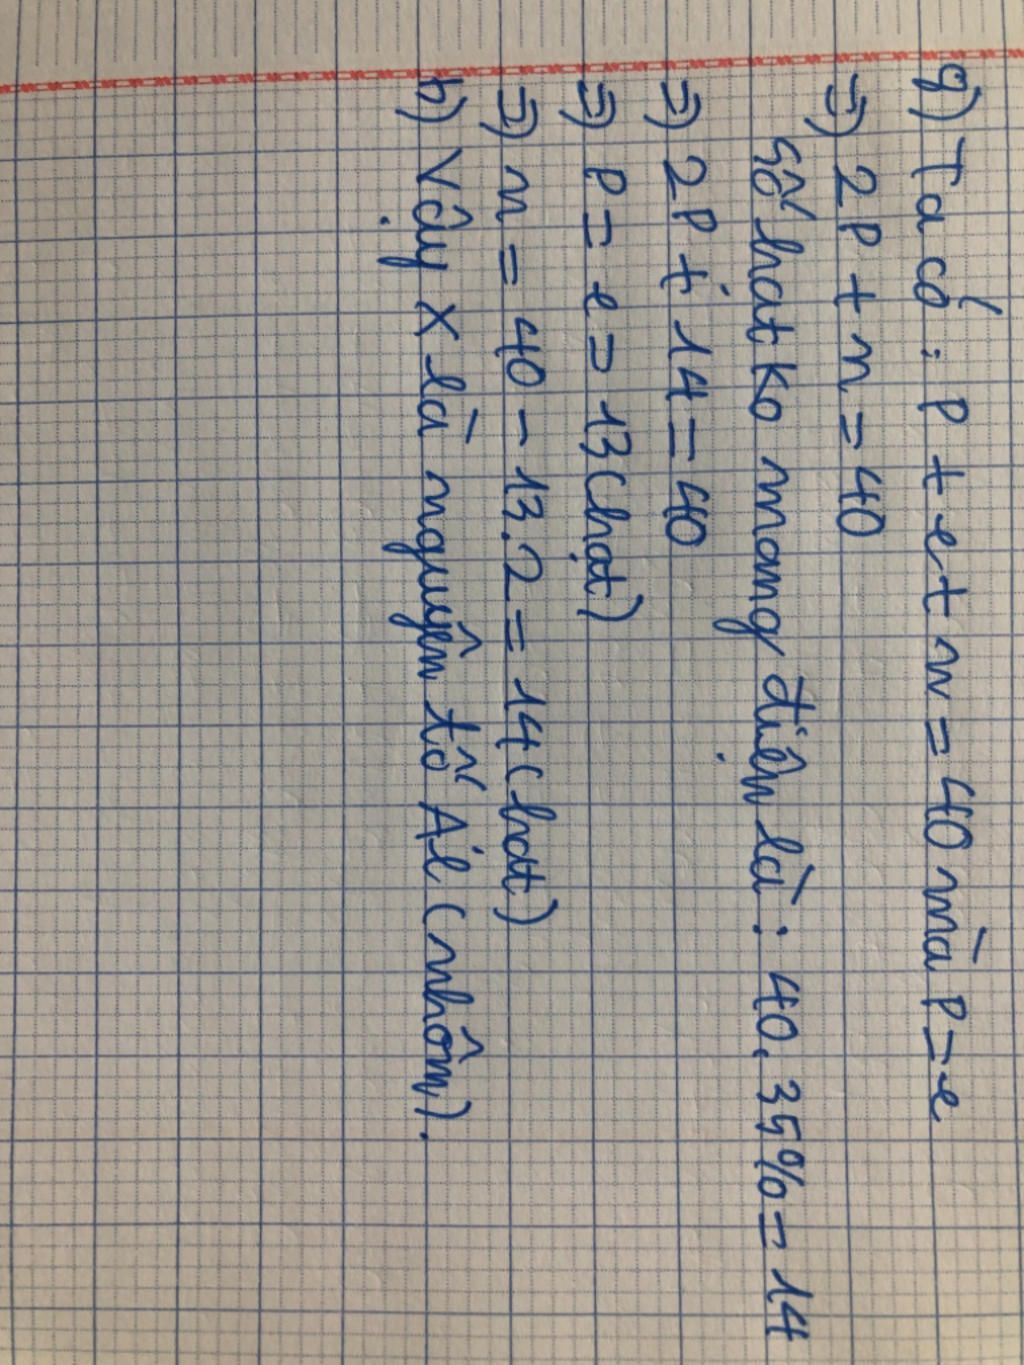 a) Ta có : P + e + n = 40 mà P = e
=) 2P + n = 40
Số hat ko mang điện là : 40. 35% = 14
=) 2P + 14 = 40
=) P = e = 13 (hạt)
=) n = 40 - 13.2 = 14 (hat)
b) Vậy X là nguyên tố Al (nhôm).